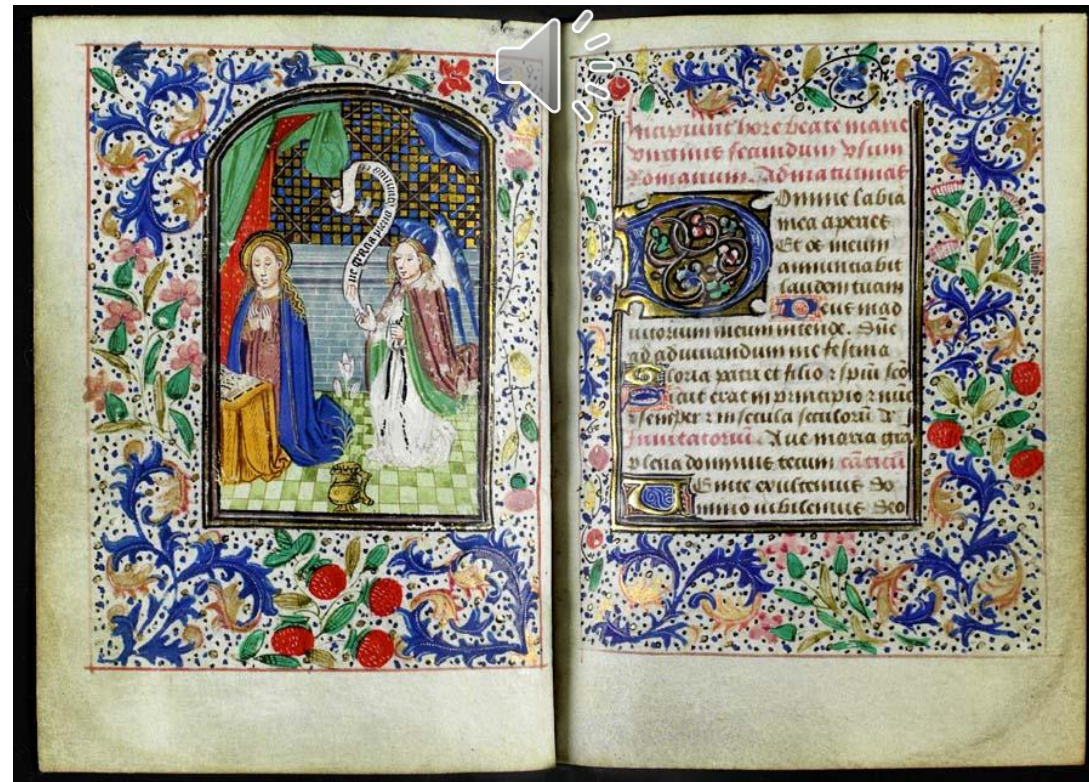 ue gracia plena dominus te
Incipiunt hore beate marie
virginis secundum vsum
Romanum. Ad matutinas
Domine labia
mea aperies
Et os meum
annunciabit
laudem tuam
Deus in ad
iutorium meum intende. Dñe
ad adiuuandum me festina
Gloria patri et filio ⁊ spiũi sco
Sicut erat in principio ⁊ nũc
⁊ semper ⁊ in secula seculorũ
Inuitatoriũ. Aue maria gra
plena dominus tecum
Uenite exultemus do
mino iubilemus deo